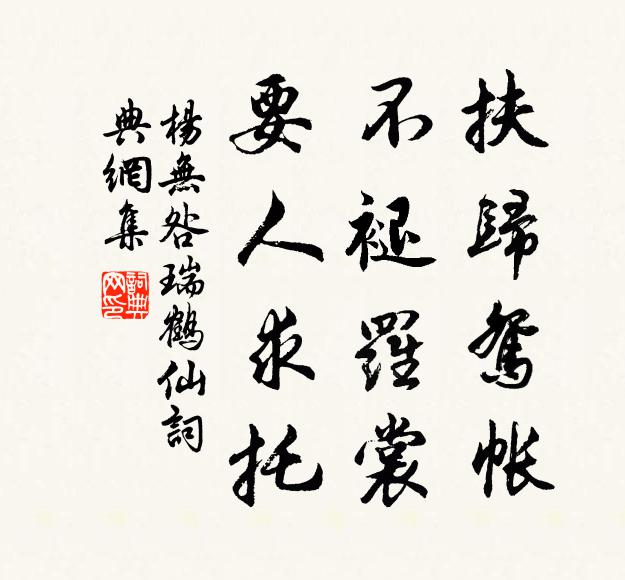 扶歸鴛帳
不褪羅裳
要人求托
楊無咎瑞鶴仙詞
典網集
詞典
网印